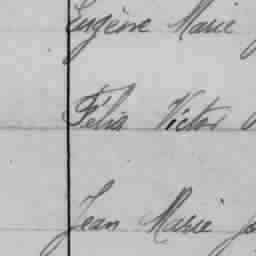 Eugène Marie
Félix Victor
Jean Marie